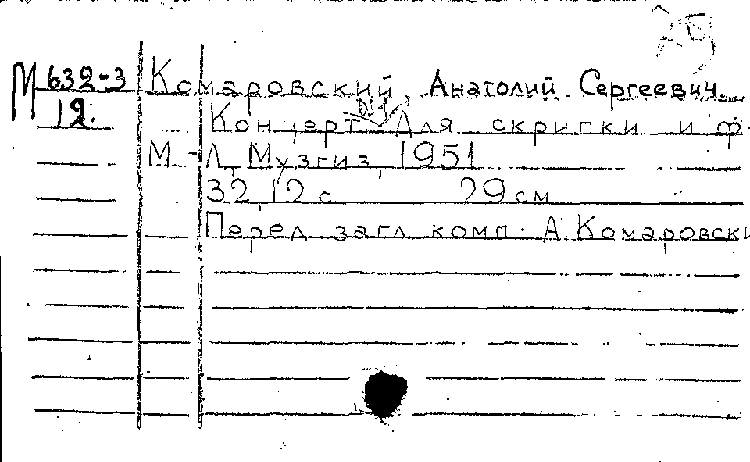 М 632-3 Комаровский, Анатолий Сергеевич.
12. Концерт №1 для скрипки и ф.
М.-Л., Музгиз, 1951
32, 12 с. 29 см
Перед загл. комп. А. Комаровски